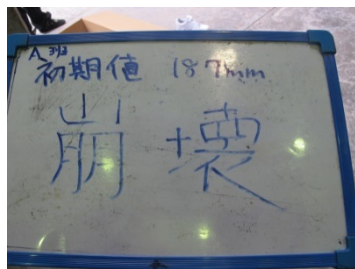 初期値 187mm
崩壊